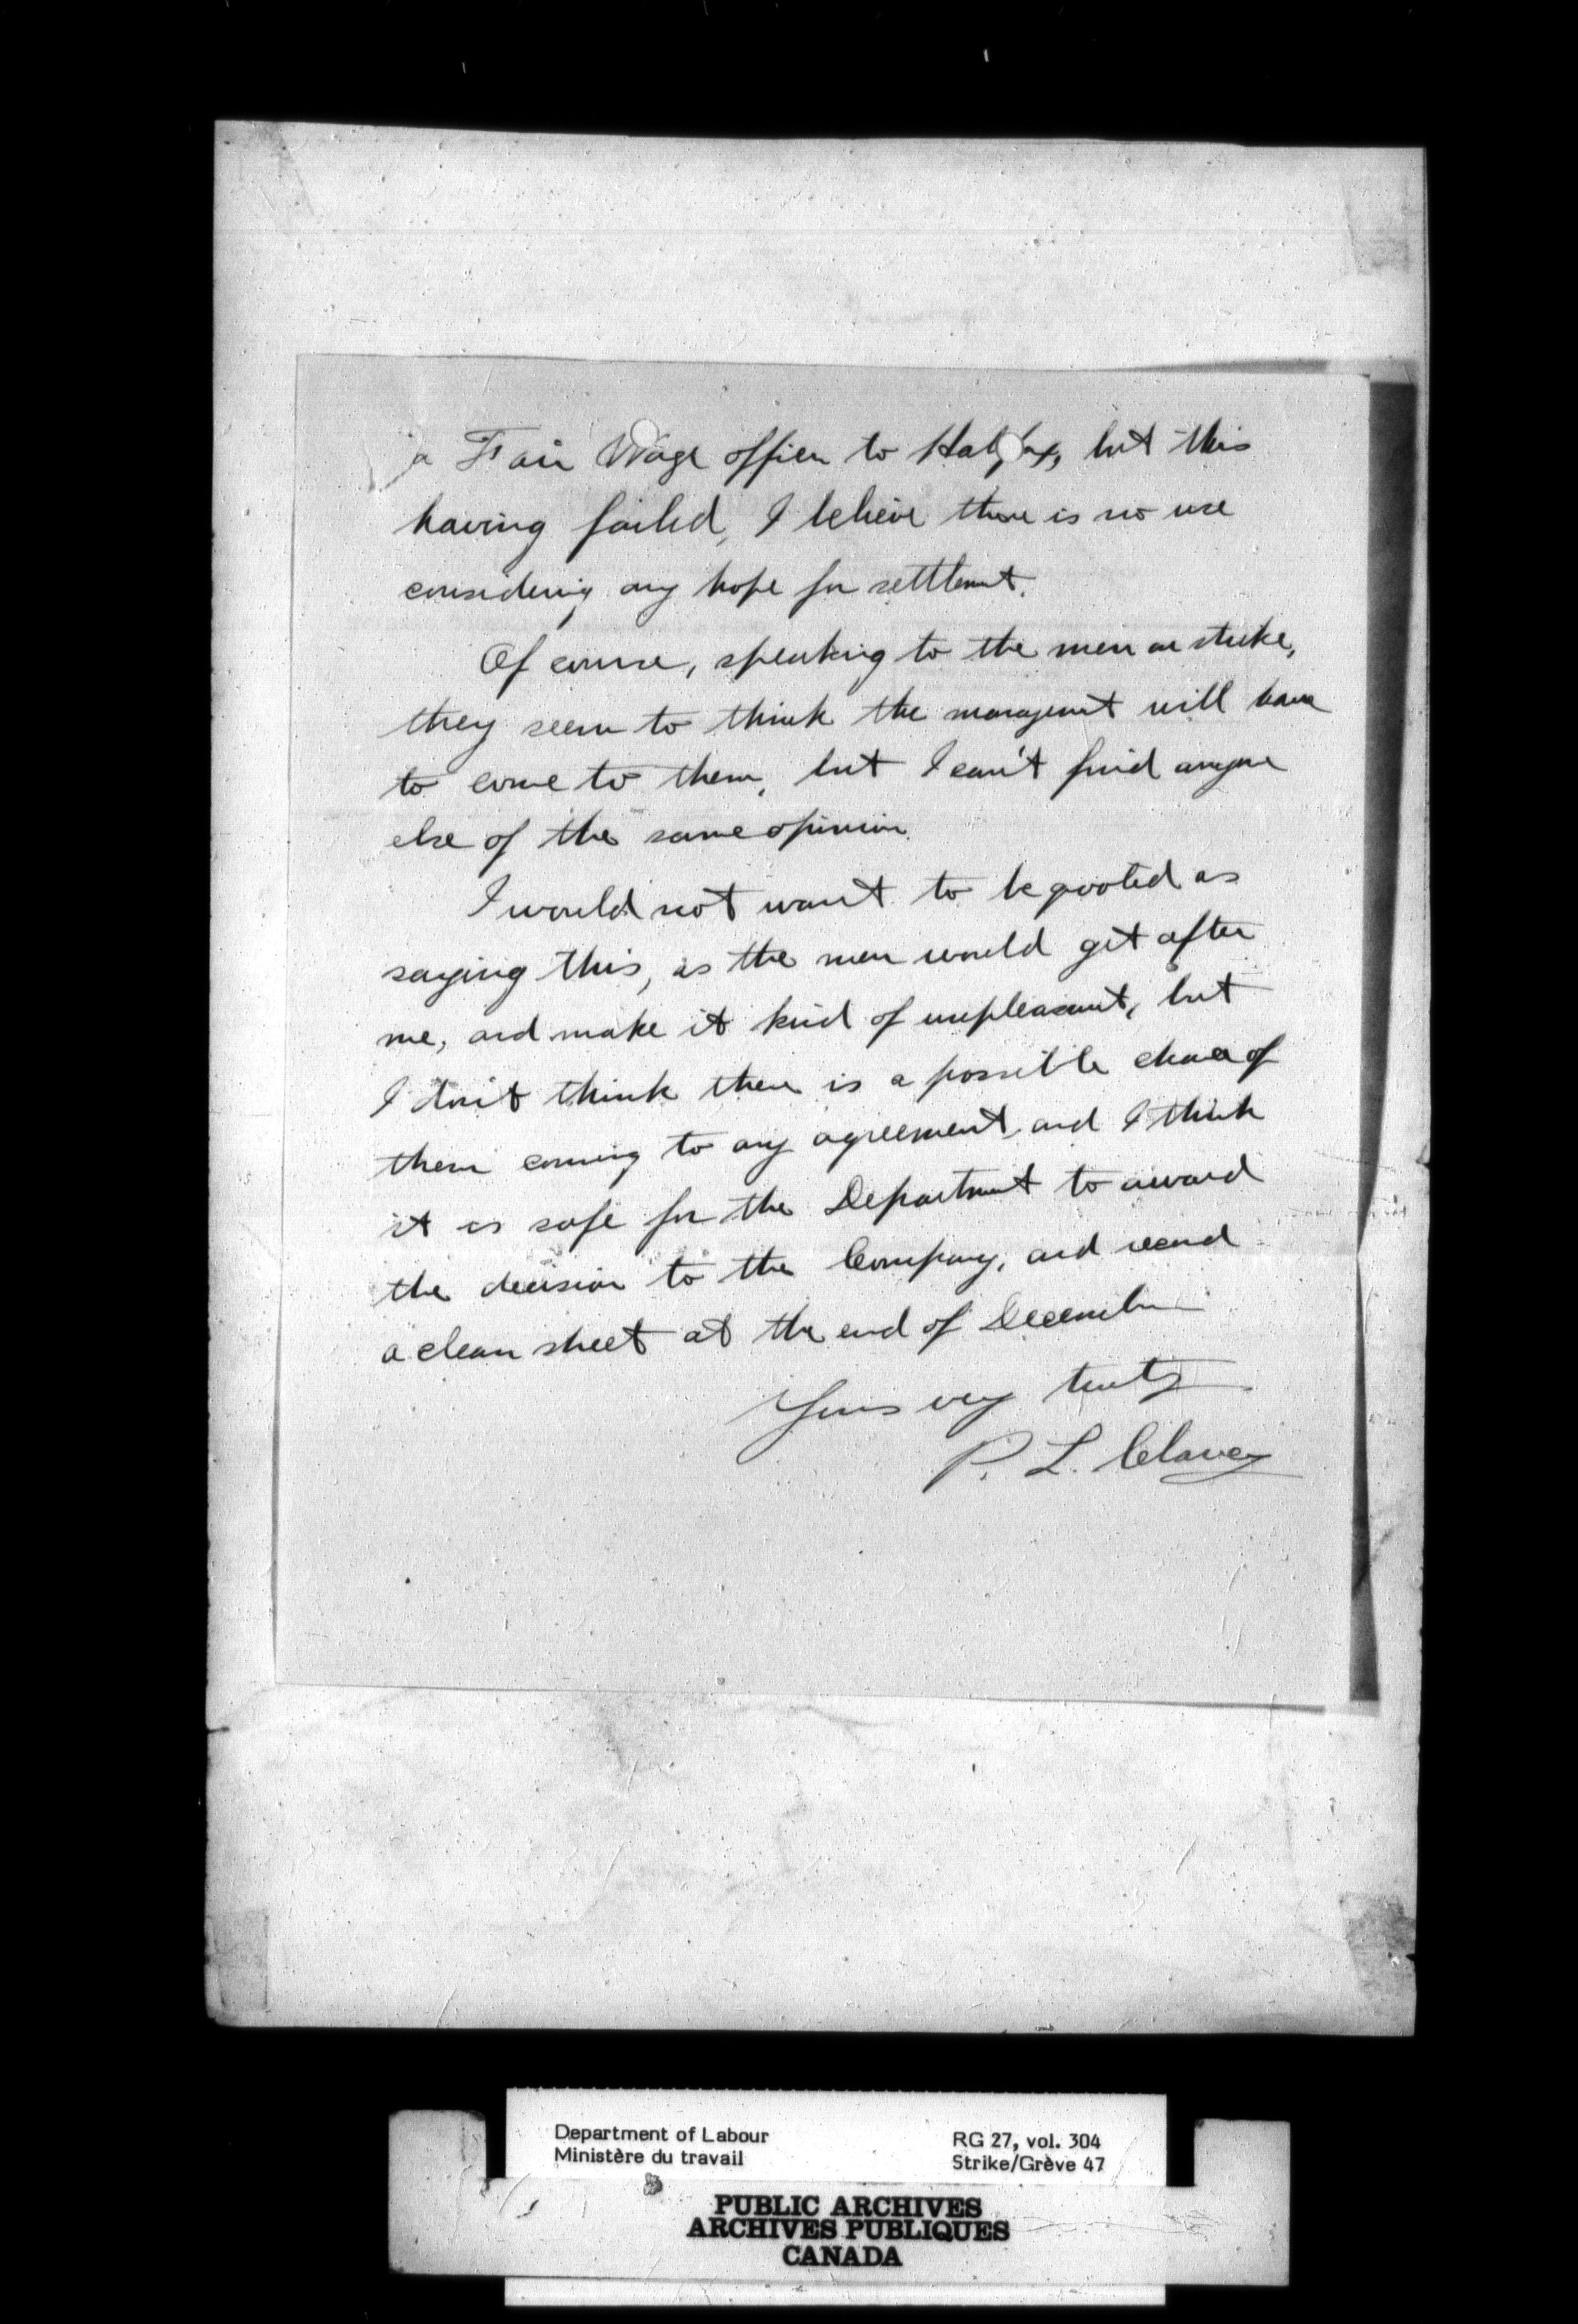 a Fair Wage officer to Halifax, but this
having failed, I believe there is no use
considering any hope for settlement.
Of course, speaking to the men on strike,
they seem to think the management will have
to come to them, but I can't find anyone
else of the same opinion.
I would not want to be quoted as
saying this, as the men would get after
me, and make it kind of unpleasant, but
I don't think there is a possible chance of
them coming to any agreement, and I think
it is safe for the Department to award
the decision to the Company, and record
a clean sheet at the end of December
Yours very truly
P. L.
Department of Labour
Ministère du travail
RG 27, vol. 304
Strike/Grève 47
PUBLIC ARCHIVES
ARCHIVES PUBLIQUES
CANADA